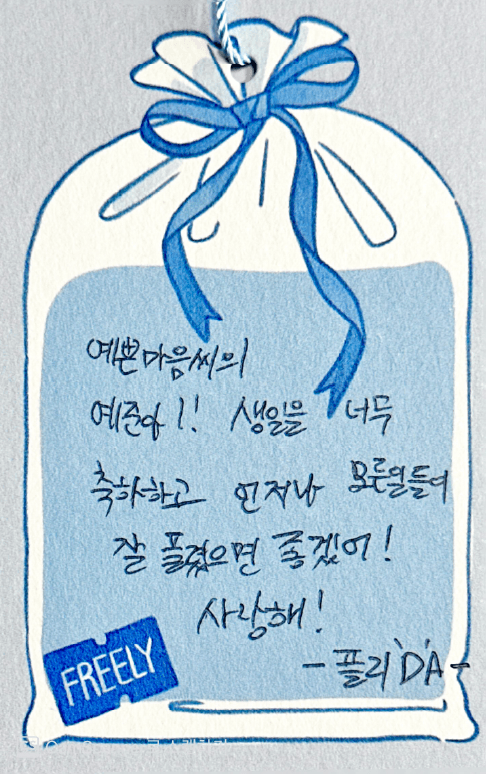 예쁜 마음씨의
예준아!! 생일을 너무
축하하고 언제나 모든일들이
잘 풀렸으면 좋겠어!
사랑해!
- 플리'DA' -
FREELY